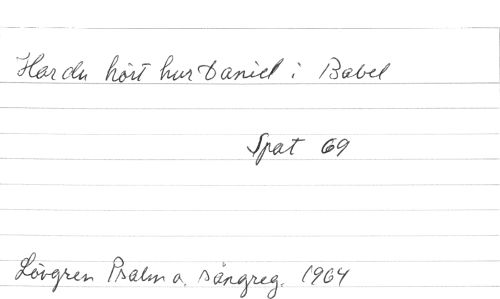 Har du hört hur Daniel i Babel
Spat 69
Lövgren Psalm o. sångreg. 1964